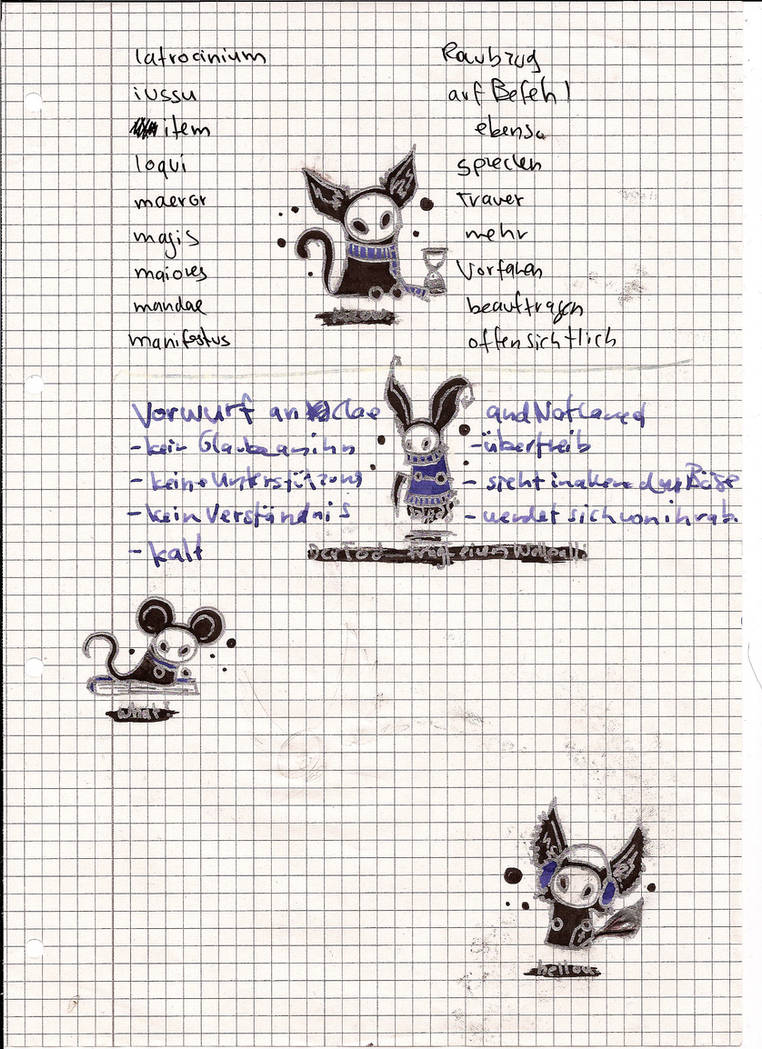 latrocinium Raubzug
iussu auf Befehl
item ebenso
loqui sprechen
maeror Trauer
magis mehr
maiores Vorfahren
mandae beauftragen
manifestus offensichtlich
Meow
Vorwurf an
- kein Glaube an ihn - übertreib
- keine Unterstützung - sieht in allem das Böse
- kein Verständnis - wendet sich von ihr ab.
- kalt
Der Tod trägt einen Wollpulli
what?